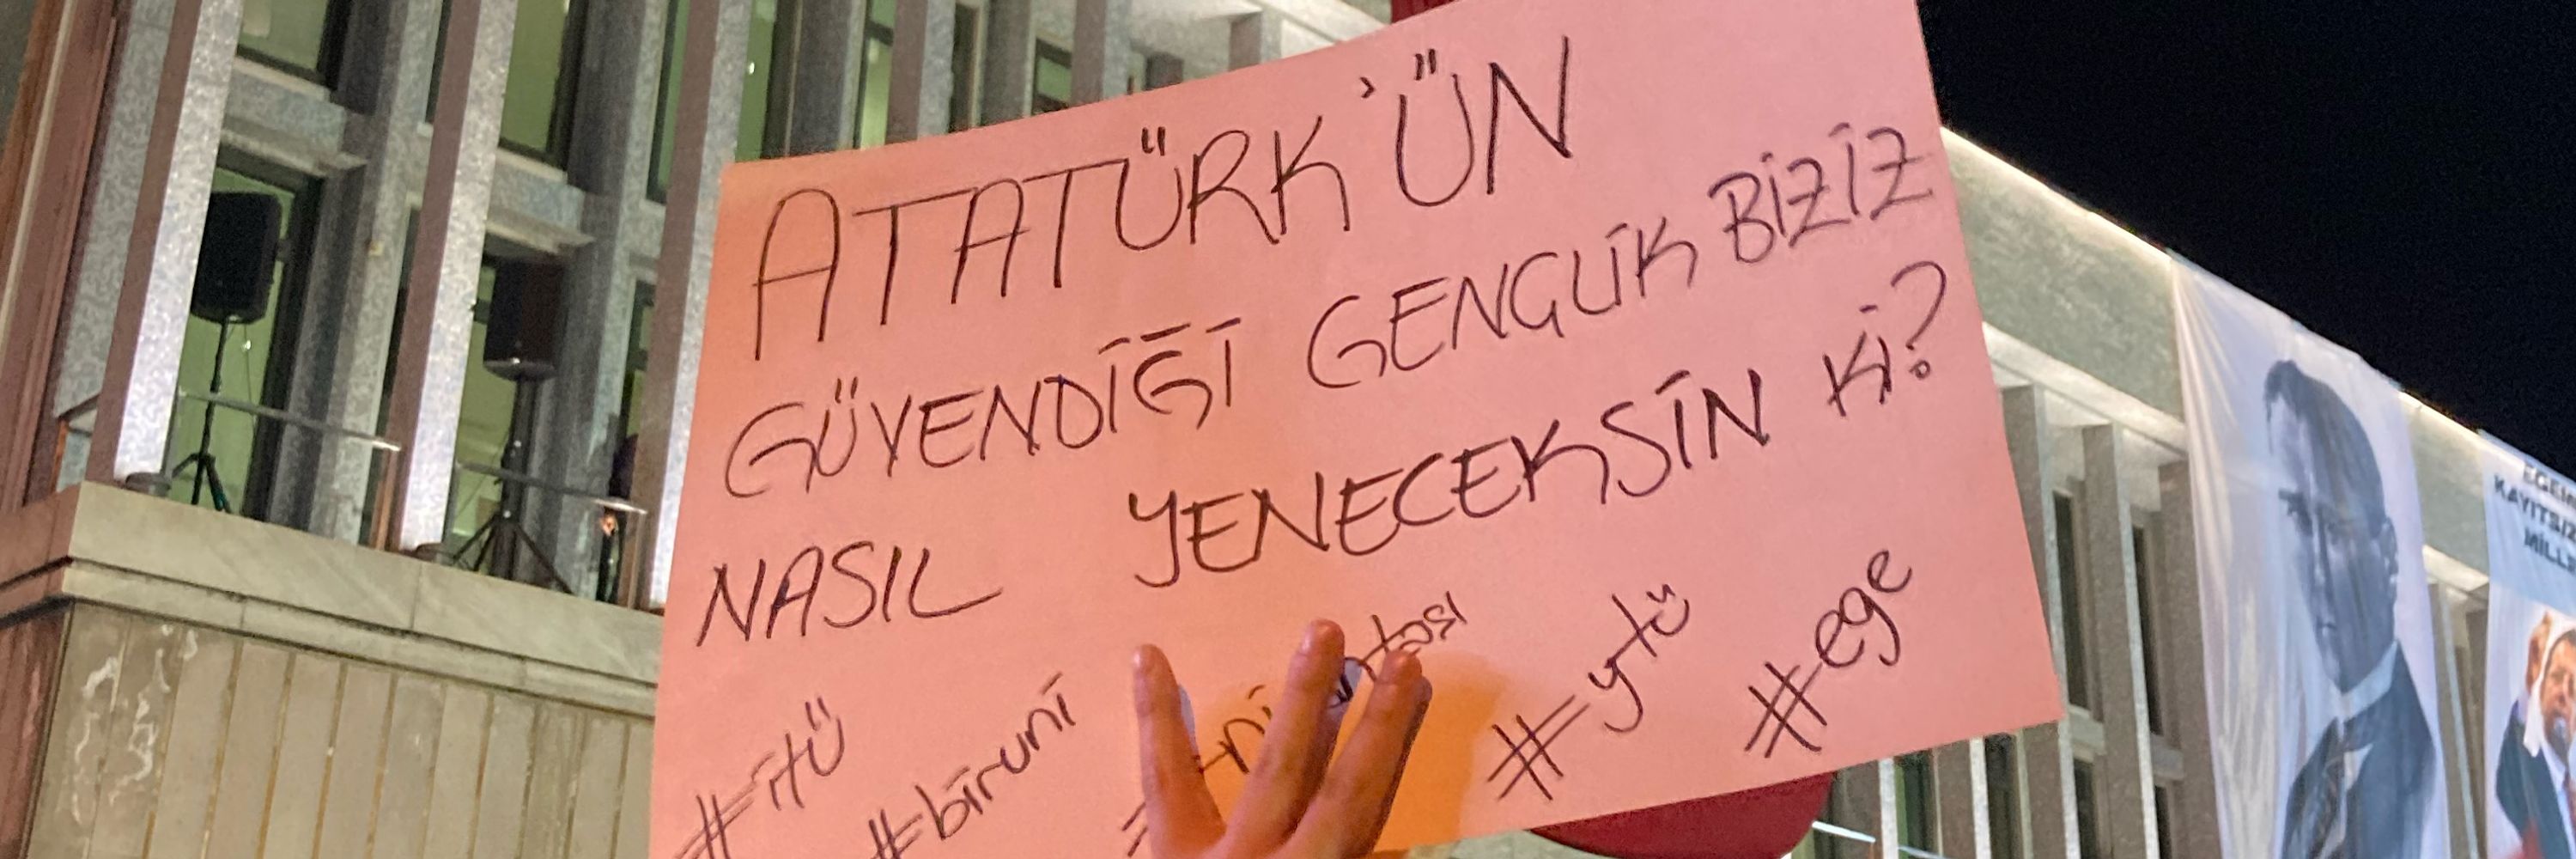 ATATÜRK'ÜN
GÜVENDİĞİ GENÇLİK BİZİZ
NASIL YENECEKSİN Kİ?
#itü #biruni #ytü #ege
KAYITSIZ